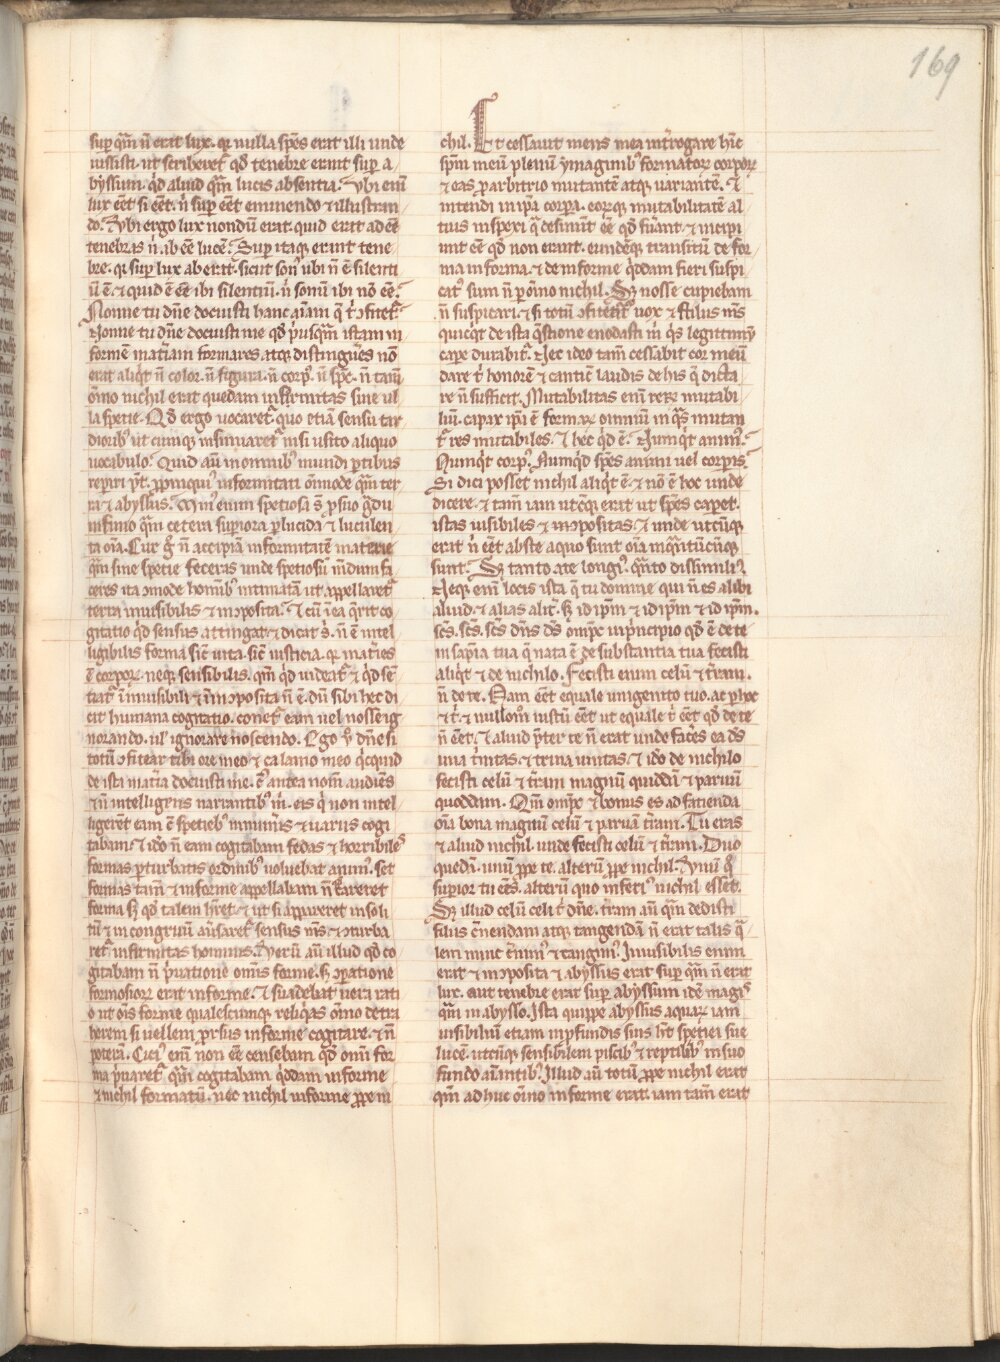 169
sup̱ qu̅a̅ n̅ erat lux. qꝛ nulla spe̅s erat illi unde
iussisti ut scriberet᷑ qd̕ tenebre erant sup̱ a
byssum. qͥd aliud qͣm lucis absentia. Vbi eni̅
lux ee̅t si ee̅t. n̅ sup̱ ee̅t eminendo ⁊ illustran
do. Vbi ergo lux nondu̅ erat. quid erat adee̅
tenebras n̅ ab ee̅ luce̅. Sup̱ itaqꝫ erant tene
bre. qꝛ sup̱ lux aberat. sicut son̕ ubi n̅ e̅ silenti
u̅ e̅. ⁊ quid e̅ ee̅ ibi silentiu̅. n̅ sonu̅ ibi no̅ ee̅.
Nonne tu dn̅e docuisti hanc ai̅am q̅ tͥ ꝯfitet᷑.
Nonne tu dn̅e docuisti me qd̕ pͥusqͣm istam in
forme̅ mat̅iam formares. atqꝫ distingue̅s no̅
erat aliqͥd n̅ color. n̅ figura. n̅ corp̕. n̅ spc̅. n̅ tam̅
o̅ino nichil erat quedam informitas sine ul
la spetie. Qd̕ ergo vocaret᷑. quo etia̅ sensu tar
diorib̕ ut cumqꝫ insinuaret᷑ nisi usito aliquo
uocabulo. Quid au̅ in omnib̕ mundi ꝑtibus
reperiri pt̅. ꝓpinqui̕ informitati o̅nimode qͣm ter
ra ⁊ abyssus. Min̕ enim spetiosa s̅ ꝓ suo gͣdu
infimo qͣm cetera supiora ꝑlucida ⁊ luculen
ta oi̅a. Cur gͦ n̅ accipia̅ informitate̅ materie
qͣm sine spetie feceras unde spetiosu̅ mu̅dum fa
ceres ita ꝯmode homi̅b̕ intimata̅ ut appellaret᷑
terra inuisibilis ⁊ inꝯposita. Vt cu̅ i̅ ea qͣrit co
gitatio qͥd sensus attingat. ⁊ dicat s̕. n̅ e̅ intel
ligibilis forma sic̅ uita. sic̅ iusticia. qꝛ mat̅ies
e̅ corpoꝝ. neqꝫ sensibilis. qm̅ qd̕ uideat᷑ ⁊ qd̕ se̅
tiat᷑ i̅ inuisibili ⁊ i̅ inꝯposita n̅ e̅. du̅ sibi hec di
cit humana cogitatio. conet᷑ eam uel nosse ig
norando. ul̕ ignorare noscendo. Ego v̕ dn̅e si
totu̅ ꝯfitear tibi ore meo ⁊ calamo meo qͥcqͥnd
de ista mat̅ia docuisti me. c̕ antea nom̅ audie̅s
⁊ n̅ intelligens narrantib̕ m̕. eis qͥ non intel
ligere̅t eam c̅ spetieb̕ innum̅is ⁊ uariis cogi
tabam. ⁊ iđo n̅ eam cogitabam fedas ⁊ horribiles
formas ꝑturbatis ordinib̕ uoluebat anim̕. set
formas tam̅ ⁊ informe appellabam n̅ qͦ careret
forma sꝫ qd̕ talem hr̅et. ⁊ ut si appareret insoli
tu̅ ⁊ incongruu̅ au̅saret᷑ sensus m̅s. ⁊ ꝯturba
ret᷑ infirmitas hominis. Veru̅ au̅ illud qd̕ co
gitabam n̅ pͥuatione omi̅s forme. sꝫ ꝯꝑatione
formosioꝝ erat informe. ⁊ suadebat uera rati
o ut oi̅s forme qualescumqꝫ reliqͥas o̅ino detra
herem si uellem pͦrsus informe cogitare. ⁊ n̅
potera̅. Citi̕ eni̅ non ee̅ censebam qd̕ omi̅ for
ma pͥuaret᷑ qͣm cogitabam qͦddam informe
⁊ nichil formatu̅. nec nichil informe ꝓpe ni
chil. Et cessauit mens mea int̅rogare hi̅c
spm̅ meu̅ plenu̅ ymaginib̕ formatoꝝ corpoꝝ
⁊ eas ꝓ arbitrio mutante̅ atqꝫ uariante̅. ⁊
intendi in ip̅a corpa. eorꝫqꝫ mutabilitate̅ al
tius inspexi qͣ desinu̅t ee̅ qd̕ fu̅ant. ⁊ incipi
unt ee̅ qd̕ non erant. eundeqꝫ transitu̅ de for
ma in forma. ⁊ de informe qͦddam fieri suspi
cat̕ sum n̅ ꝑ o̅ino nichil. Sꝫ nosse cupiebam
n̅ suspicari. ⁊ si totu̅ ꝯfiteat᷑ uox ⁊ stilus m̅s
quicqͥt de ista qͣstione enodasti m̕ qͥs legentiu̅
cape̅ durabit᷑. Nec ideo tam̅ cessabit cor meu̅
dare tͥ honore̅ ⁊ canticu̅ laudis de his q̅ dicta
re n̅ sufficit. Mutabilitas eni̅ reꝝ mutabi
liu̅. capax ip̅a e̅ formaꝝ omniu̅ in qͣs mutan
t᷑ res mutabiles. ⁊ hec qͥd e̅. Numqͥt anim̕.
Numqͥt corp̕. Numqͥd spe̅s animi uel corpis.
Si dici posset nichil aliqͥt e̅. ⁊ no̅ e̅ hoc unde
dicere̅. ⁊ tam̅ iam utcu̅qꝫ erat ut spe̅s capet.
istas uisibiles ⁊ inꝯpositas. ⁊ unde utcu̅qꝫ
erat n̅ ee̅t abs te a quo sunt oi̅a inqͣntu̅cu̅qꝫ
sunt. Sꝫ tanto a te longi̕. qͣnto dissimili̕.
Neqꝫ eni̅ locis ista q̅ tu domine qui n̅ es alibi
aliud. ⁊ alias alit̅. sꝫ id ip̅m ⁊ id ip̅m ⁊ id ip̅m.
sc̅s. sc̅s. sc̅s dn̅s ds̅ omp̅c in pͥncipio qd̕ e̅ de te
in sapi̅a tua q̅ nata e̅ de substantia tua fecisti
aliqͥt ⁊ de nichilo. Fecisti enim celu̅ ⁊ t̅ram.
n̅ de te. Nam ee̅t equale unigenito tuo. ac ꝑ hoc
⁊ tͥ. ⁊ nullom̅ iustu̅ ee̅t ut equale tͥ ee̅t qd̕ de te
n̅ ee̅t. ⁊ aliud pͣter te n̅ erat unde faces ea ds̅
una tͥnitas. ⁊ trina unitas. ⁊ iđo de nichilo
fecisti celu̅ ⁊ t̅ram magnu̅ quidda̅ ⁊ paruu̅
quoddam. Qm̅ omp̅c ⁊ bonus es ad facienda
oi̅a bona magnu̅ celu̅ ⁊ parua̅ t̅ram. Tu eras
⁊ aliud nichil. unde fecisti celu̅ ⁊ t̅ram. Duo
queda̅. unu̅ ꝓpe te. alteru̅ ꝓpe nichil. Vnu̅ qͦ
supior tu ee̅s. alteru̅ quo inferi̕ nichil esset.
Sꝫ illud celu̅ celi tͥ dn̅e. t̅ram au̅ qͣm dedisti
filiis c̅nendam atqꝫ tangenda̅ n̅ erat talis qͣ
lem nunc c̅nim̕ ⁊ tangim̕. Inuisibilis enim
erat ⁊ inꝯposita ⁊ abyssus erat sup̱ qͣm n̅ erat
lux. aut tenebre erat sup̱ abyssum ide̅ magis
qͣm in abysso. Ista quippe abyssus aquaꝝ iam
uisibiliu̅ etiam in ꝓfundis suis ht̅ spetiei sue
luce̅. utcu̅qꝫ sensibilem piscib̕ ⁊ reptilib̕ in suo
fundo ai̅antib̕. Illud au̅ totu̅ ꝓpe nichil erat
qm̅ adhuc o̅ino informe erat. iam tam̅ erat